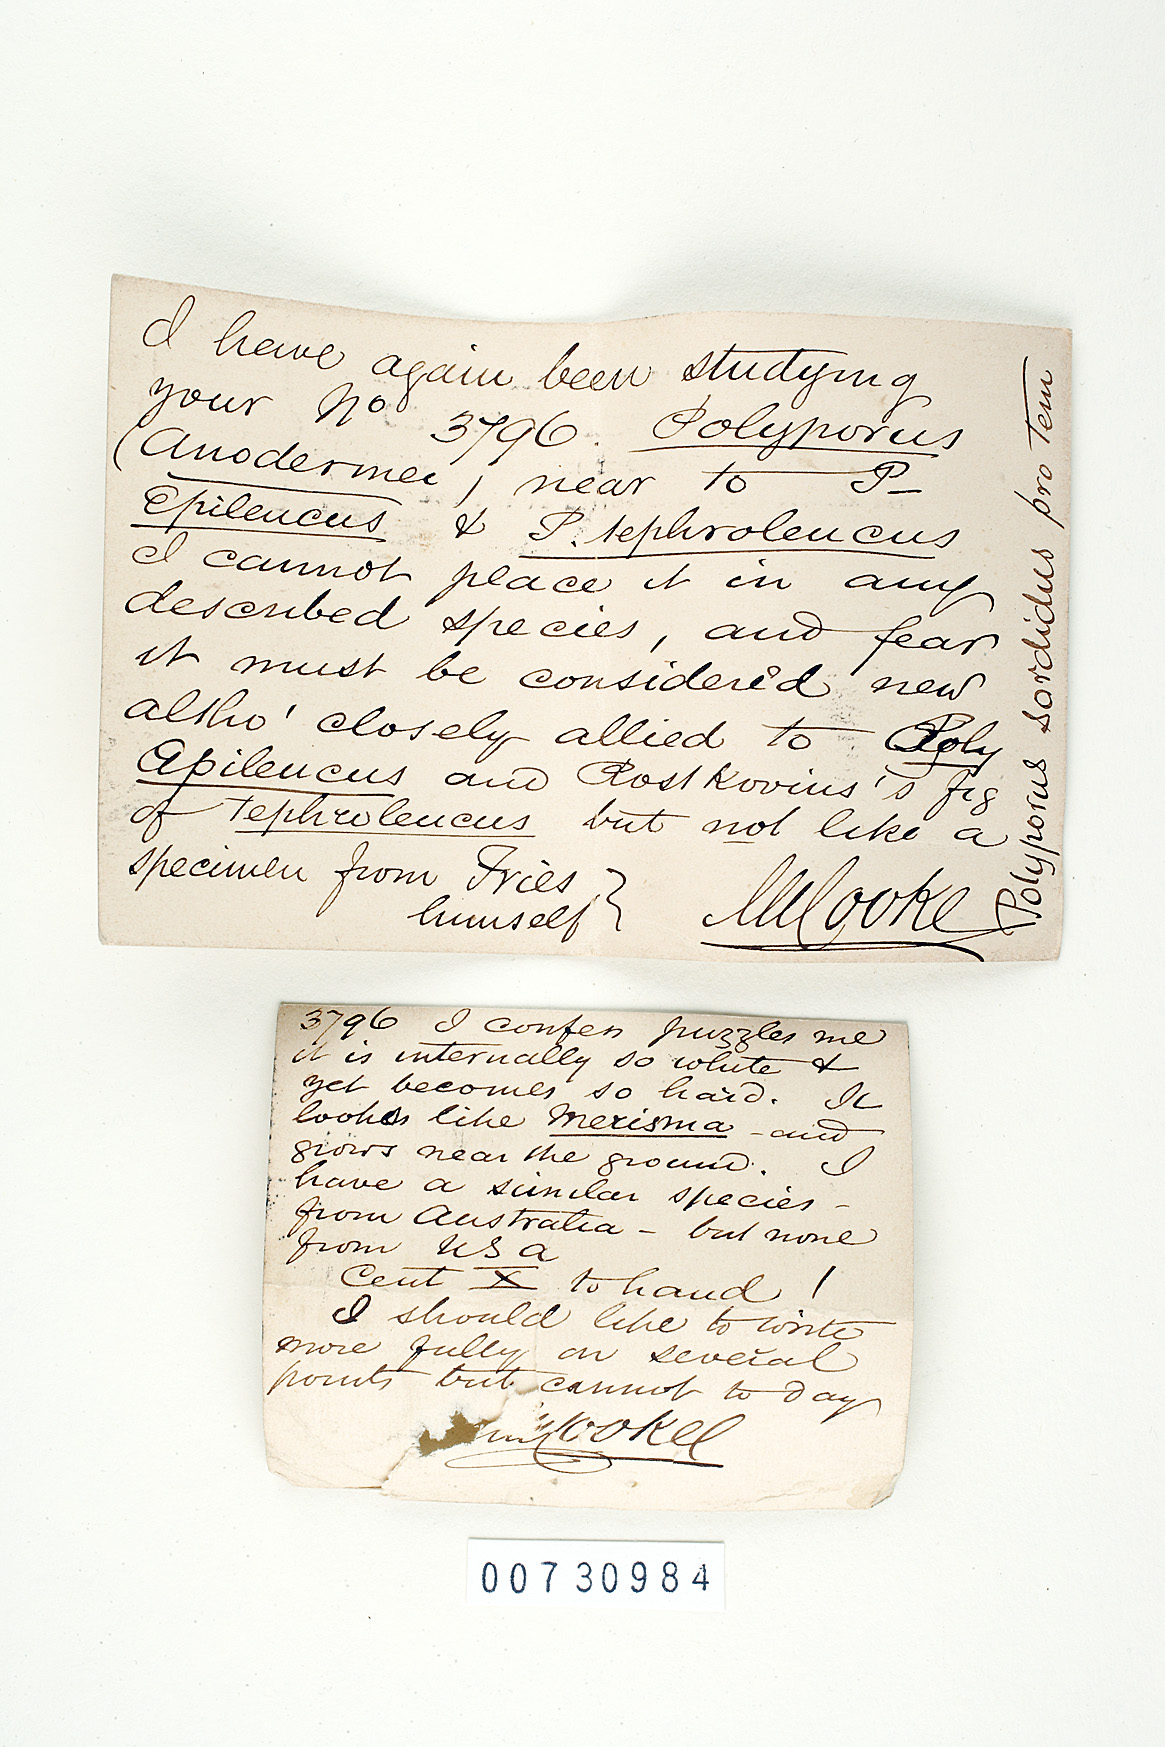 I have again been studying
your No 3796. Polyporus
(Anodermei) near to P-
Epileucus & P. tephroleucus
I cannot place it in any
described species, and fear
it must be considered new
altho' closely allied to Poly
Epileucus and Rostkovius's fig
of tephroleucus but not like a
specimen from Fries
himself }
MCCooke
Polyporus sordidus pro tem
3796 I confess puzzles me
it is internally so white &
yet becomes so hard. It
looks like Merisma - and
grows near the ground. I
have a similar species -
from Australia - but none
from U S A
Cent X to hand !
I should like to write
more fully on several
points but cannot to day
Cooke
00730984